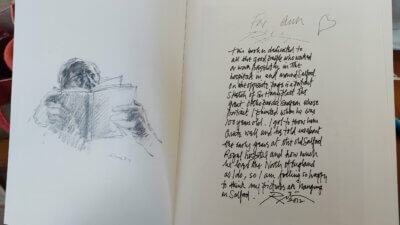 For
this book is dedicated to
all the good people who worked
or work happily in the
hospitals in and around Salford
on the opposite page is a portrait
sketch of Sir Harry Platt the
great orthopaedic surgeon whose
portrait I painted when he was
100 years old. I got to know him
quite well and he told me about
the early years at the old Salford
Royal hospital and how much
he loved the North of England
as I do, so I am feeling so happy
to think my pictures are hanging
in Salford.
2012